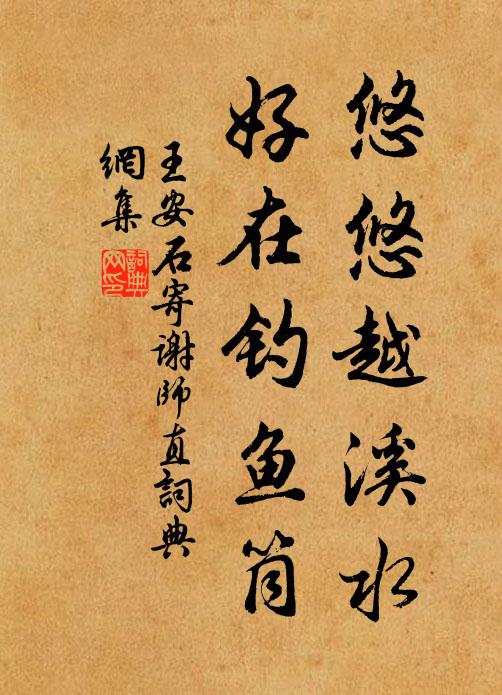 悠悠越溪水
好在钓鱼筒
王安石寄谢師直詞典
網集
詞典网印